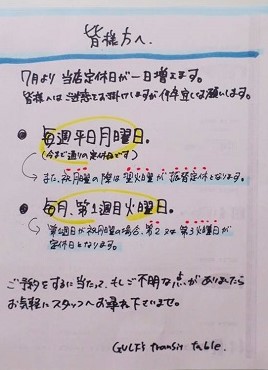 皆様方へ.
7月より 当店定休日が一日増えます。
皆様へは ご迷惑をお掛けしますが 何卒宜しくお願いします。
毎週平日月曜日.
(今まで通りの定休日です)
また、祝月曜の際は 翌火曜が 振替定休となります.
毎月、第1週目火曜日.
第1週目が祝月曜の場合、第2 又は 第3火曜日が
定休日となります。
ご予約をするに当たって、もしご不明な点がありましたら
お気軽にスタッフへお尋ね下さいませ。
transit table.